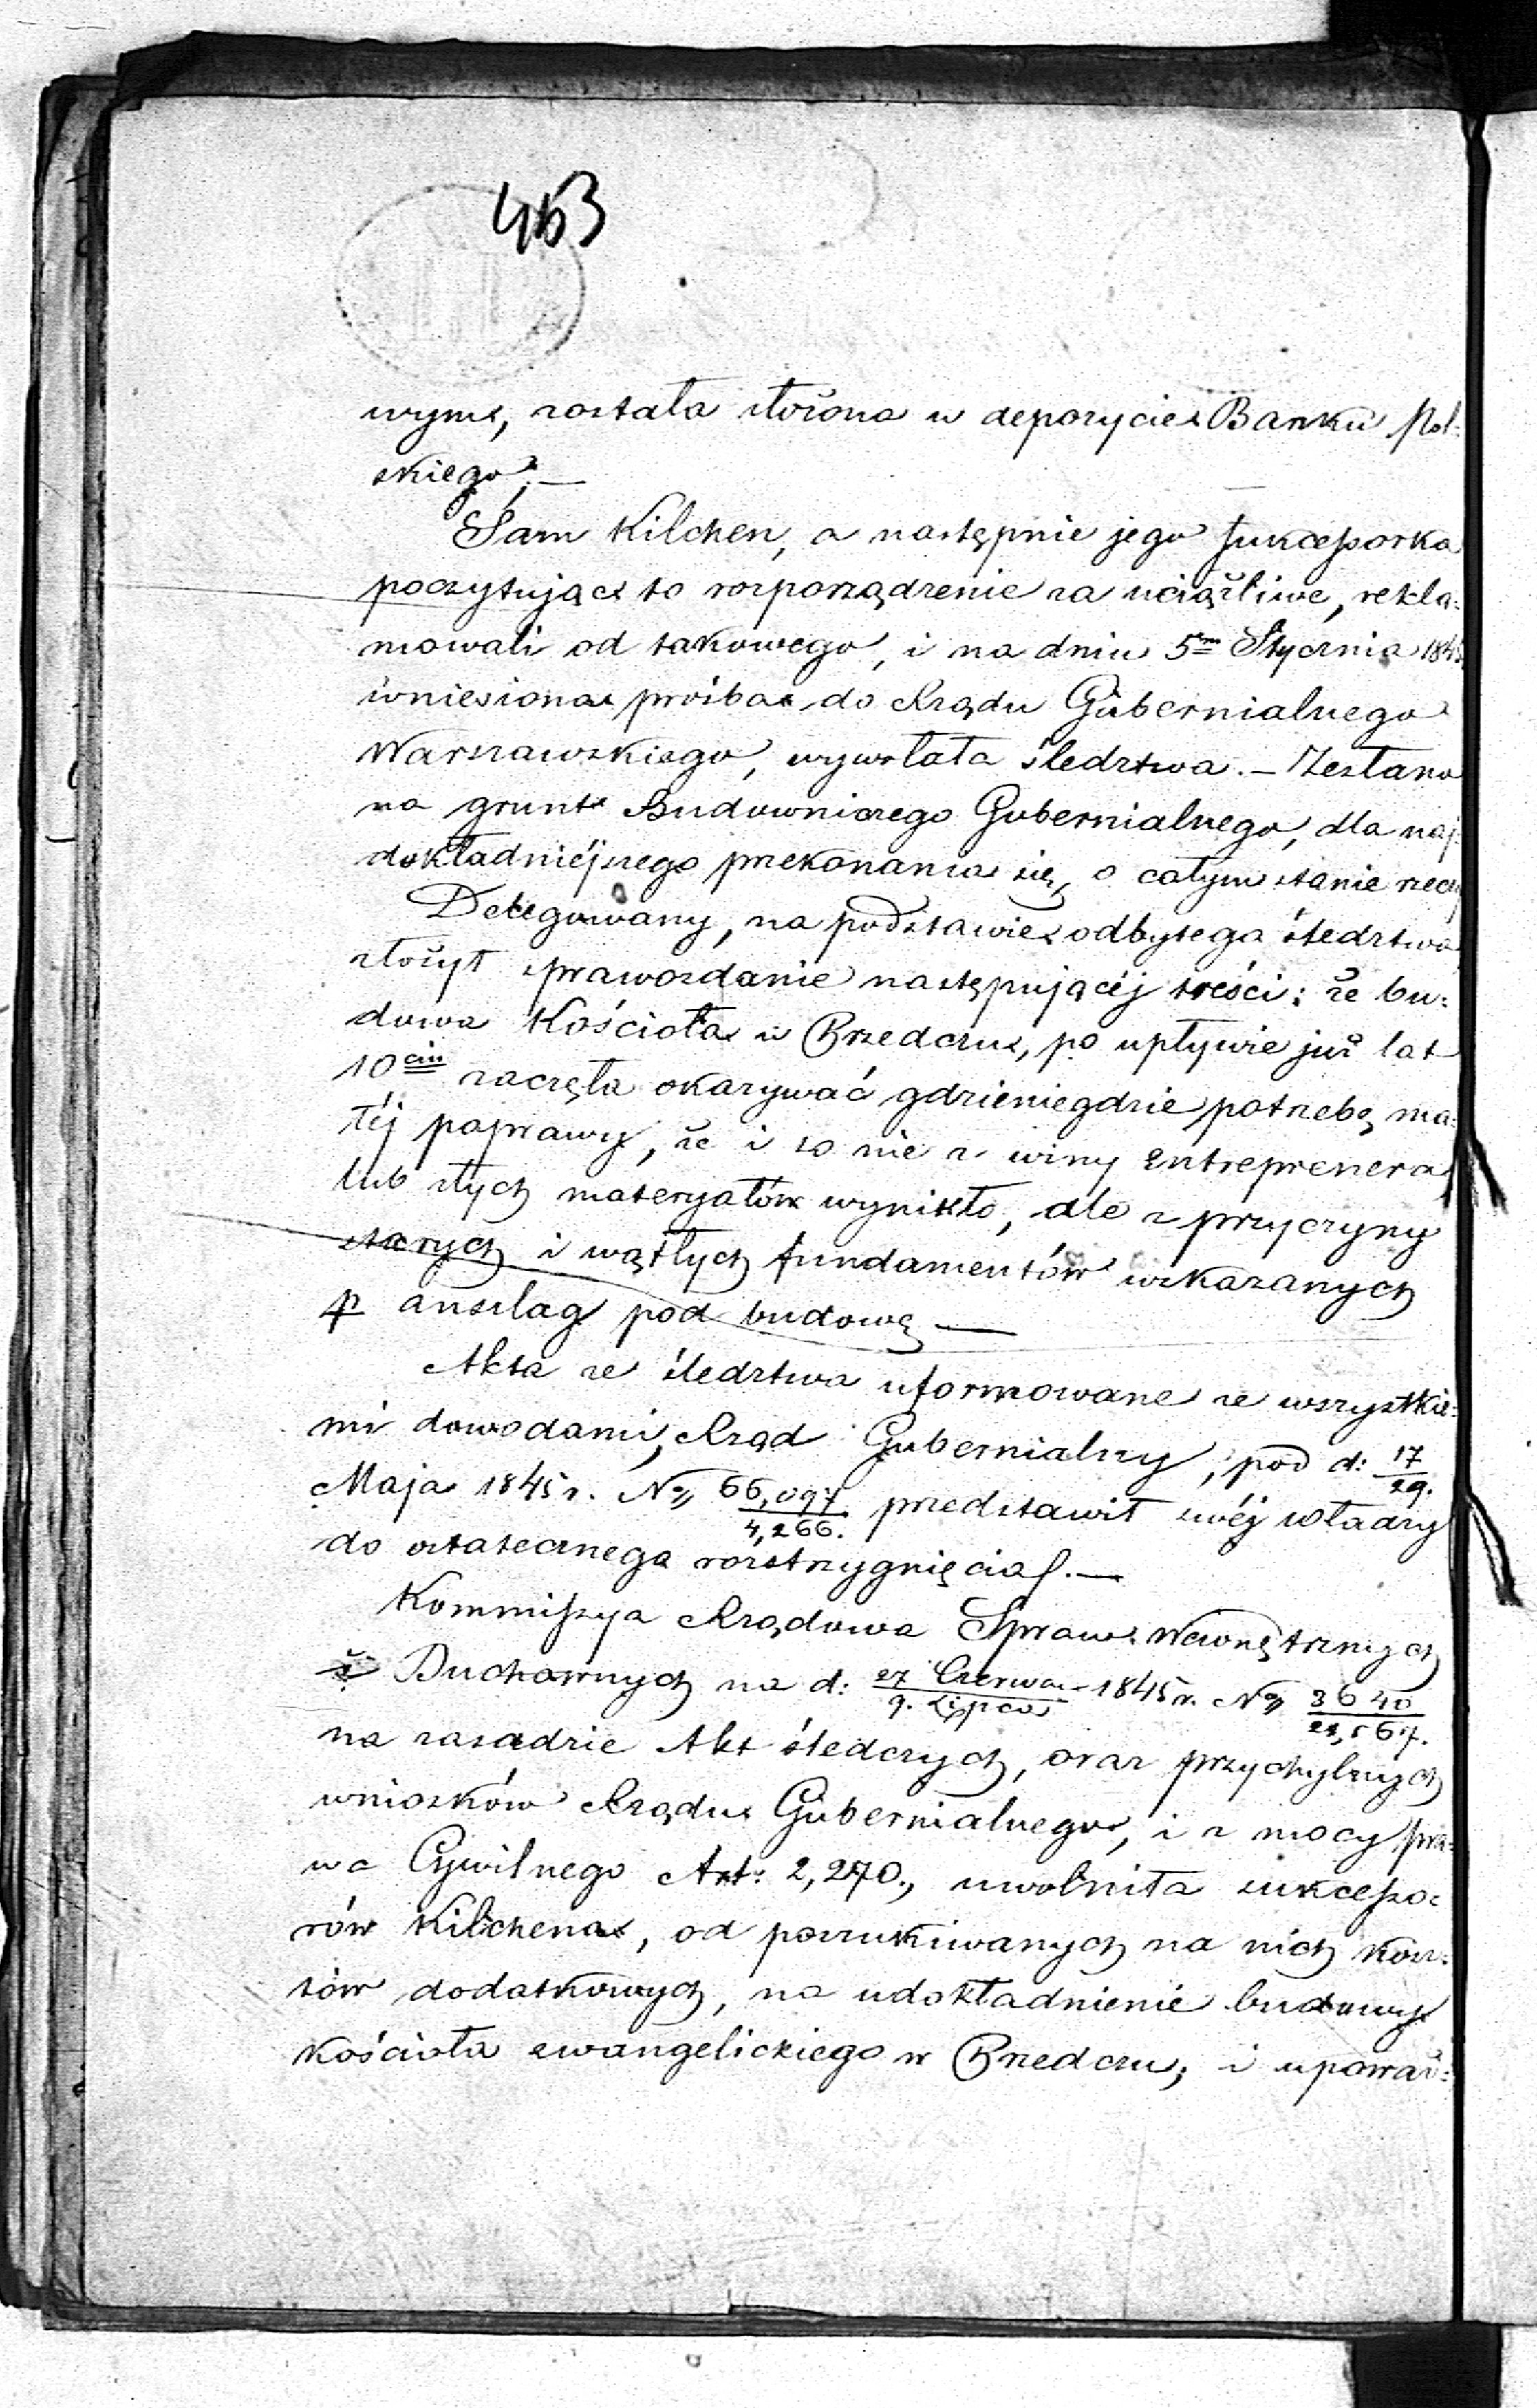 463
wym, została złożona w depozycie Banku Pol-
skiego;—
Sam Kilchen, a następnie jego Sukcessorka
poczytując to rozporządzenie za uciążliwe, rekla-
mowali od takowego, i na dniu 5m Stycznia 1845
wniesiona prośba do Rządu Gubernialnego
Warszawskiego, wywołała śledztwa.— Zesłano
na grunt Budowniczego Gubernialnego, dla naj-
dokładniejszego przekonania się, o całym stanie rzeczy
Delegowany, na podstawie odbytego śledztwa
złożył sprawozdanie następującéj treści: że bu-
dowa Kościoła w Brzedczu, po upływie już lat
10ciu zaczęła okazywać gdzieniegdzie potrzebę ma-
łéj poprawy, że i to nie z winy Entreprenera
lub złych materyałów wynikło, ale z przyczyny
starych i wątłych fundamentów wskazanych
p anszlag pod budowę —
Akta ze śledztwa uformowane ze wszystkie-
mi dowodami, Rząd Gubernialny, pod d: 17/29.
Maja 1845 r. No 66,097/4,266. przedstawił swéj władzy
do ostatecznego rozstrzygnięcia.—
Kommissya Rządowa Spraw Wewnętrznych
i Duchownych na d: 27 Czerwca/9. Lipca 1845 r. No 3640/21,567.
na zasadzie Akt śledczych, oraz przychylnych
wniosków Rządu Gubernialnego, i z mocy pra-
wa Cywilnego Art: 2,270., uwolniła sukcesso-
rów Kilchena, od poszukiwanych na nich kosz-
tów dodatkowych, na udokładnienie budowy
kościoła ewangelickiego w Brzedczu; i upoważ-